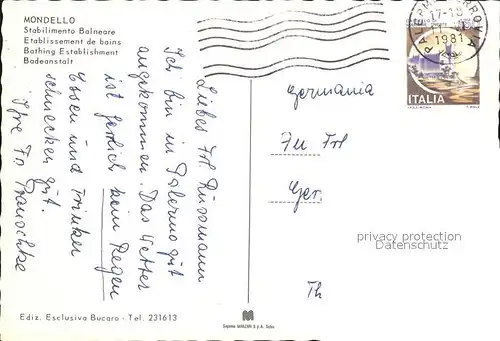 MONDELLO
Stabilimento Balneare
Etablissement de bains
Bathing Establishment
Badeanstalt
Liebes Frl. Rüssmann
Ich bin in Palermo gut
angekommen. Das Wetter
ist herrlich kein Regen
Essen und Trinken
schmecken gut.
PALERMO FERROVIA
17-18
1981
ITALIA
Germania
Frl
privacy protection
Datenschutz
Ediz. Esclusiva Bucaro - Tel. 231613